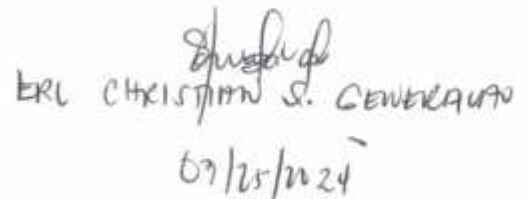 ERL CHRISTIAN S. GENERALAO
03/25/2024